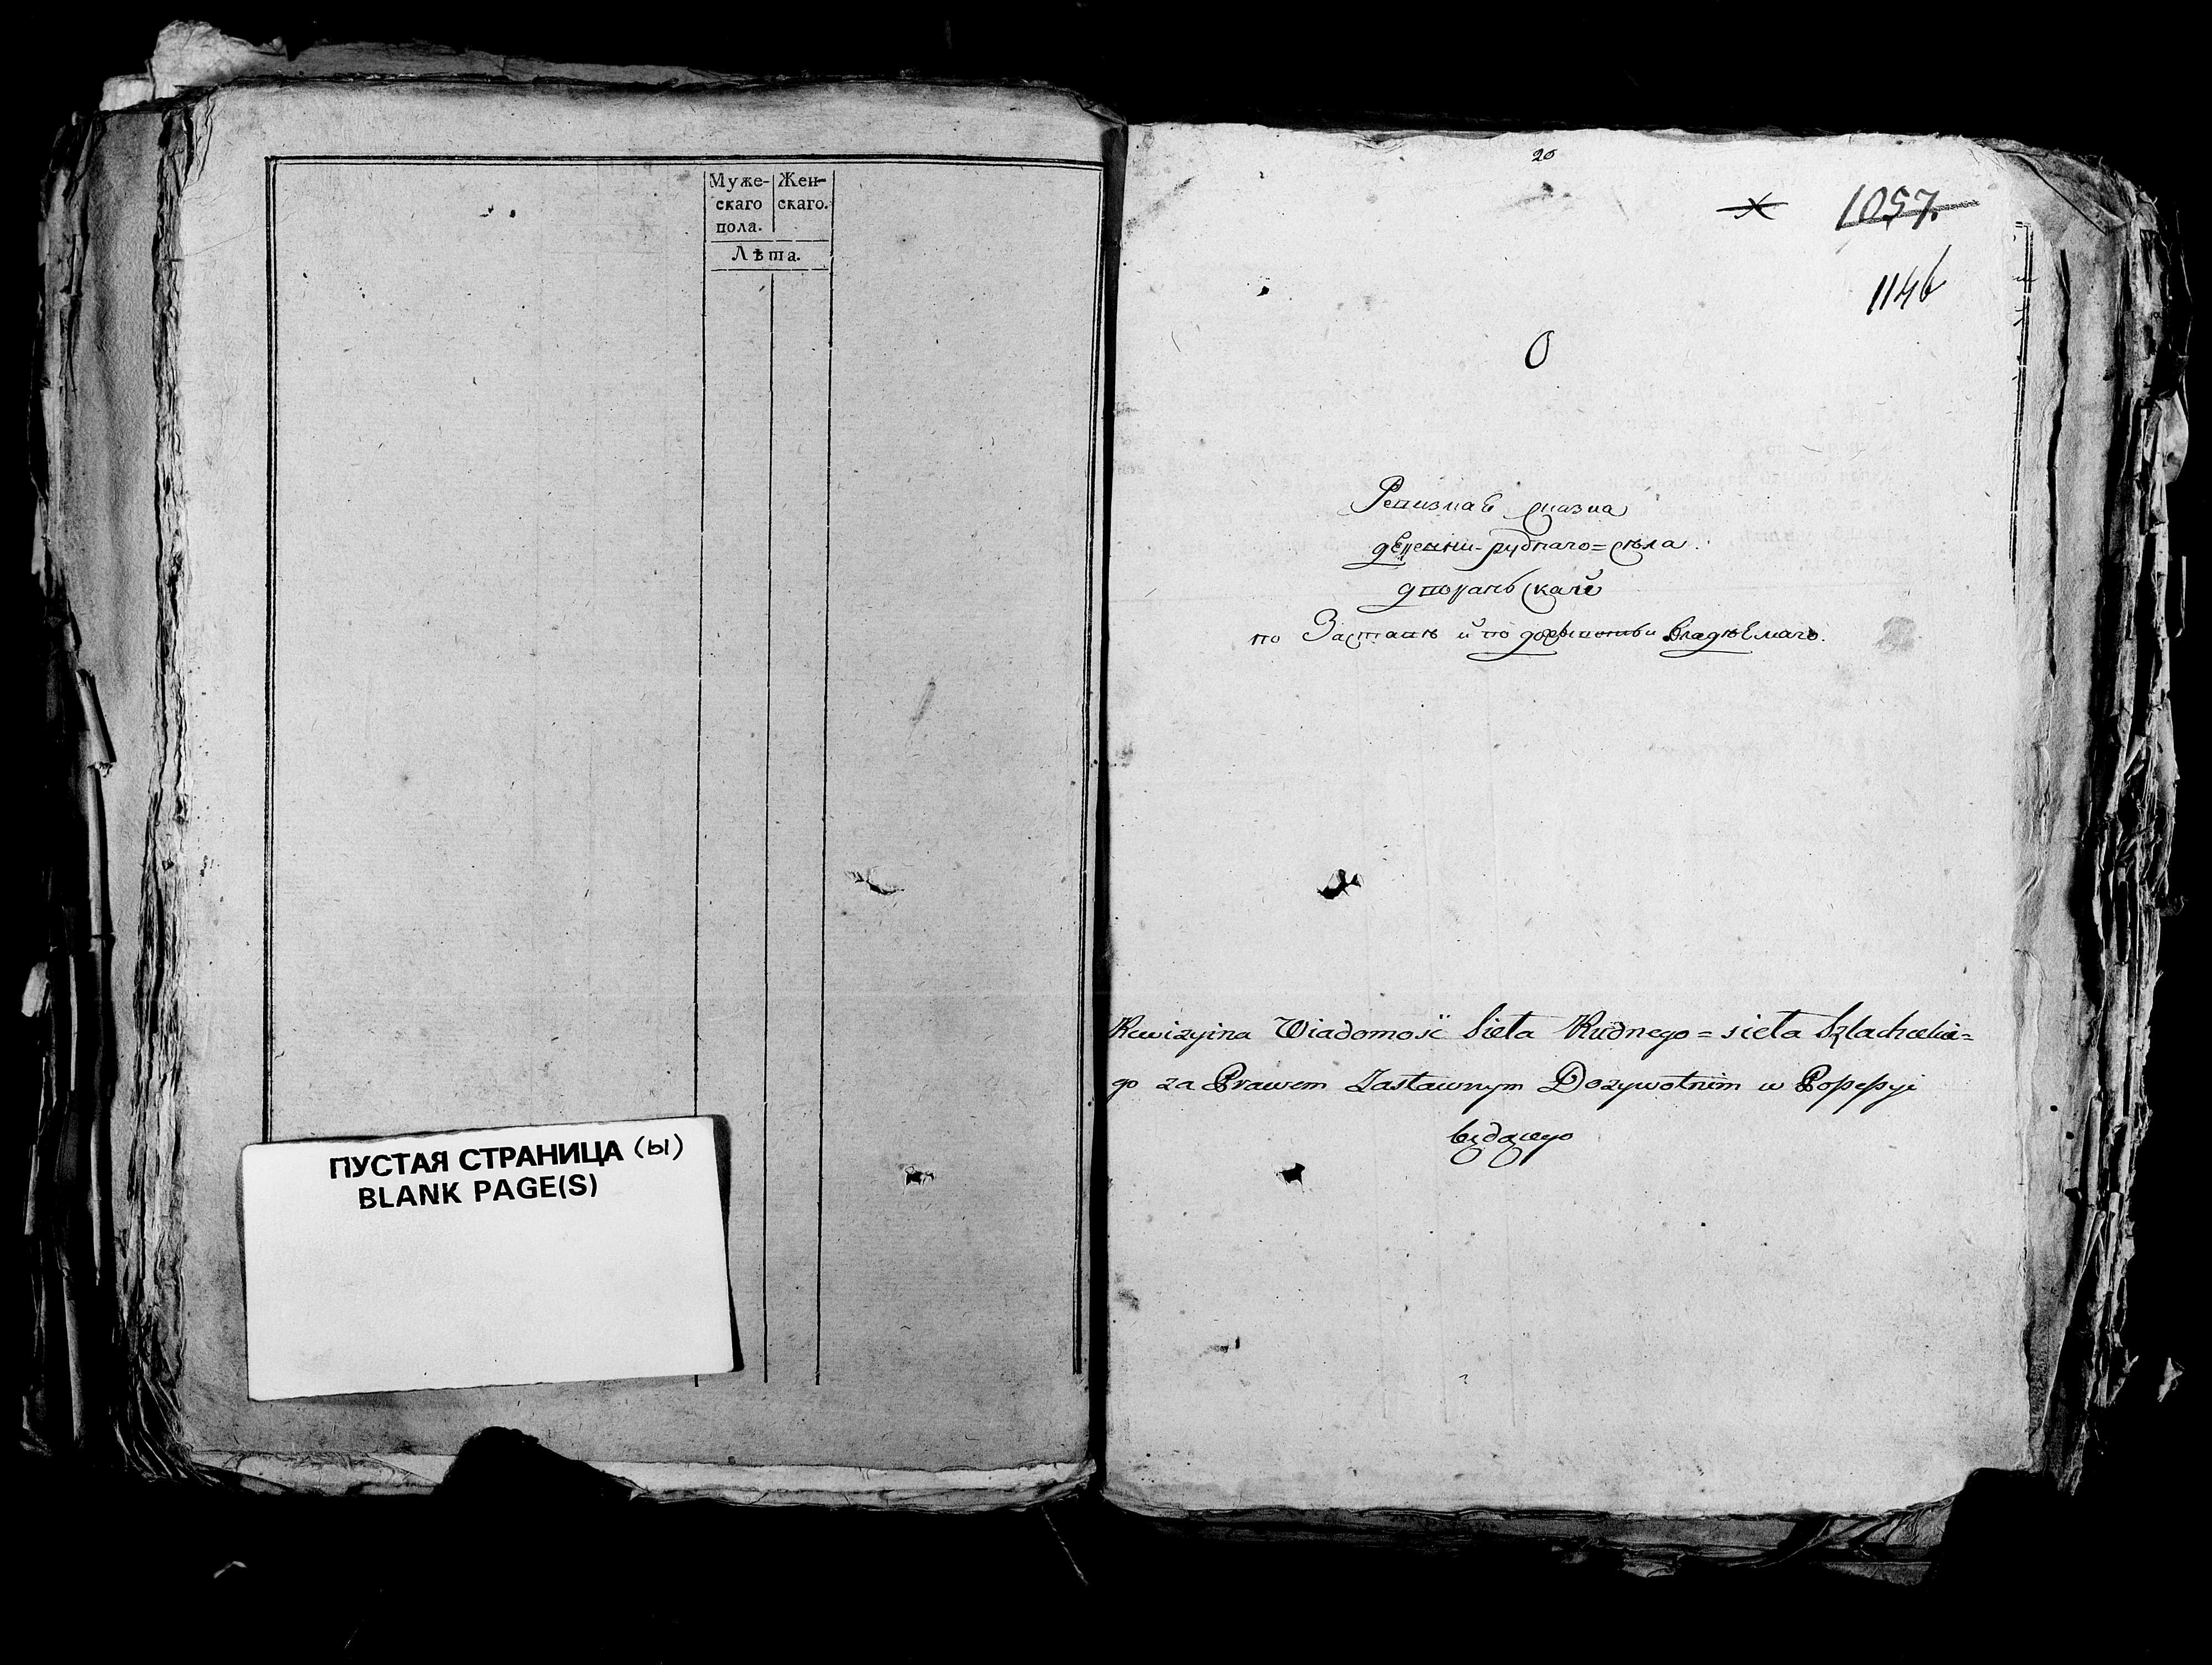 Муже-
скаго
пола.
Жен-
скаго.
Лѣта.
ПУСТАЯ СТРАНИЦА (Ы)
BLANK PAGE(S)
20
1057.
1146
0
Ревизная сказка
деревни рудного=села
дворянской
по Заставѣ и по доживотьи владѣемаго.
Rewizyina Wiadomość Sieła Rudnego=sieła Szlacheckie=
go za Prawem Zastawnym Dozywotnim w Possessyi
będącego